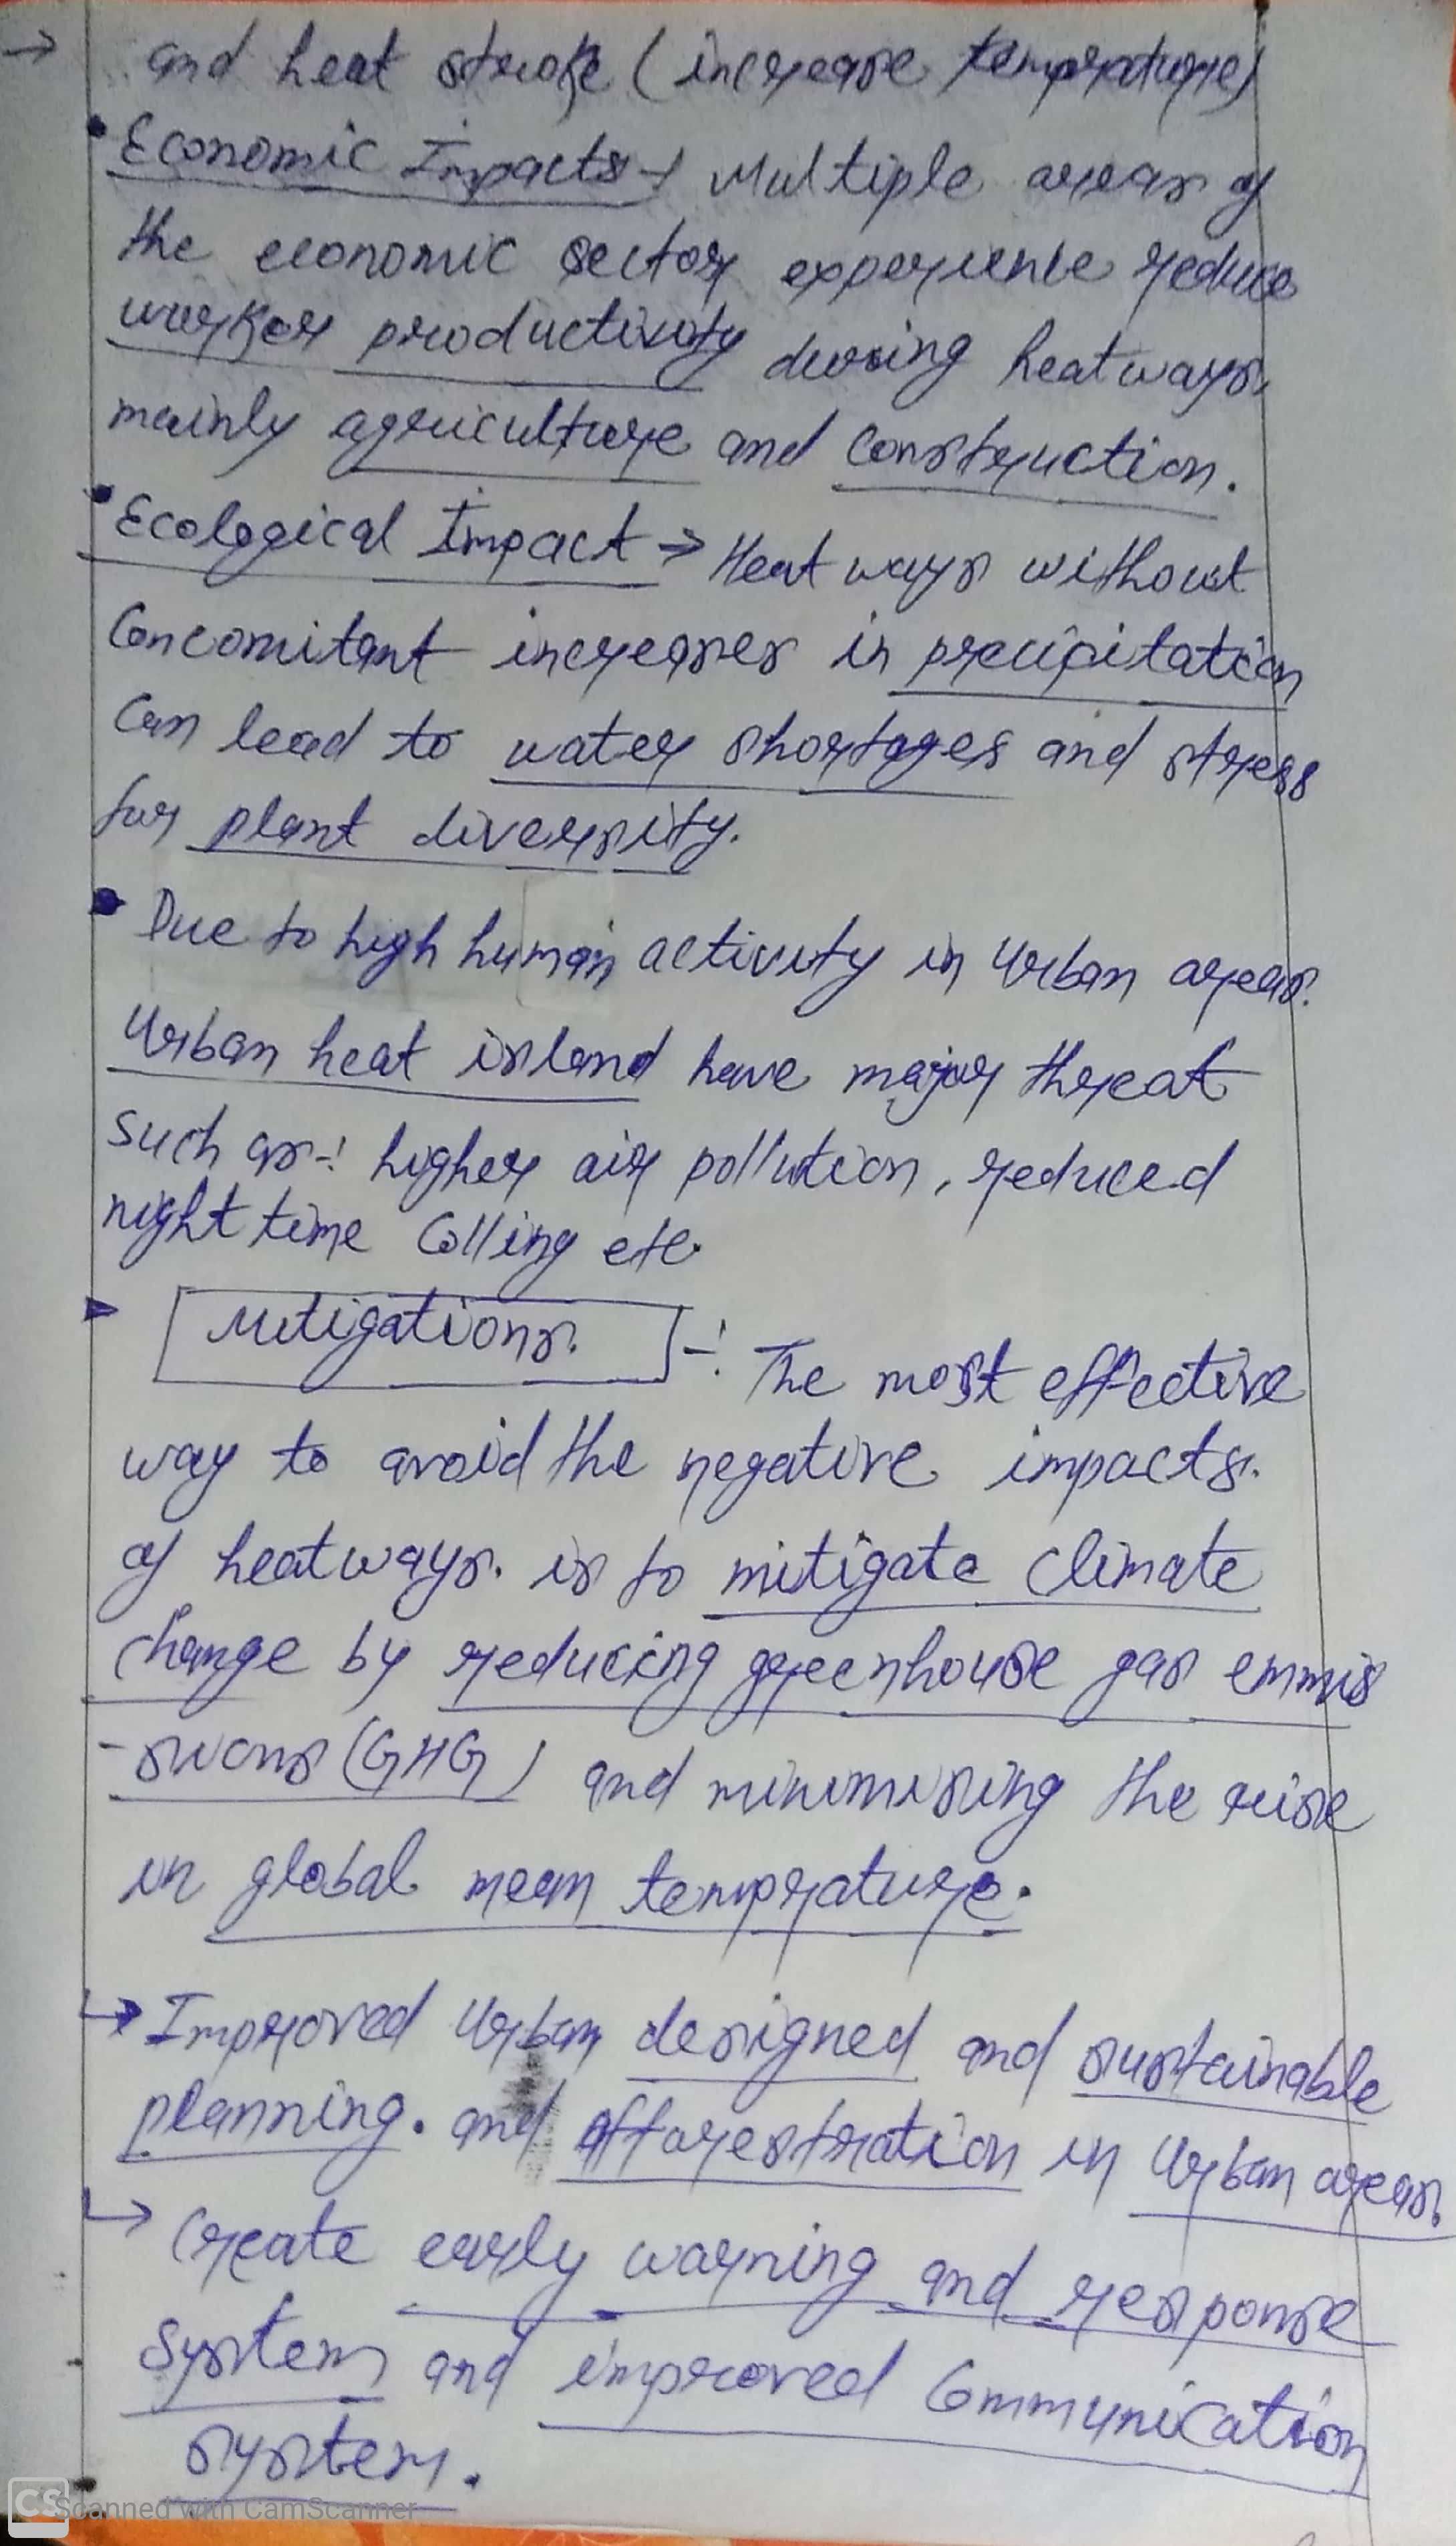 → and heat stroke (increase temprature)
• Economic Impacts → Multiple areas of
the economic sector experience reduce
worker productivity during heatways,
mainly agriculture and construction.
• Ecological Impact → Heat ways without
Concomitant increases in precipitation
Can lead to water shortages and stress
for plant diversity.
• Due to high human activity in Urban areas.
Urban heat island have major threat
such as -: higher air pollution, reduced
night time Colling etc.
▸ Mitigations. -: The most effective
way to avoid the negative impacts.
of heatways. is to mitigate climate
change by reducing greenhouse gas emmis
-sions (GHG) and minimising the rise
in global mean temprature.
↳ Improved Urban designed and sustainable
planning. and afforestration in Urban areas.
↳ Create early warning and response
System and improved Communication
system.
CS Scanned with CamScanner